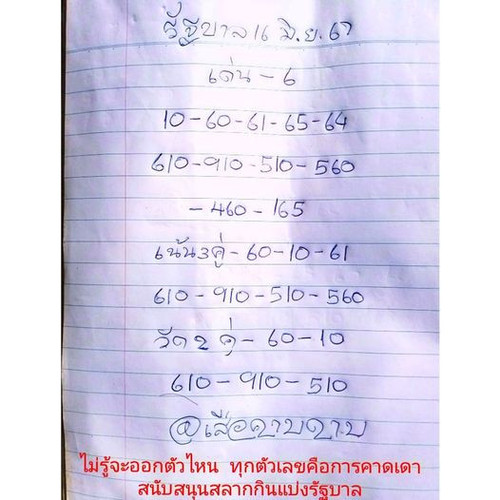 รัฐบาล 16 มิ.ย. 67
เด่น - 6
10-60-61-65-64
610-910-510-560
- 460 - 165
เน้น 3 คู่ - 60-10-61
610 - 910 - 510 - 560
วัด 2 คู่ - 60-10
610 - 910 - 510
@เสือคาบดาบ
ไม่รู้จะออกตัวไหน ทุกตัวเลขคือการคาดเดา
สนับสนุนสลากกินแบ่งรัฐบาล